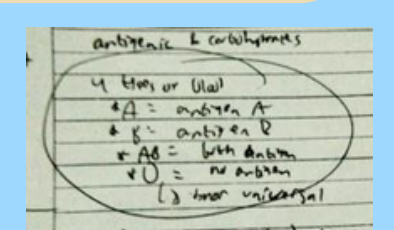 antigenic & carbohydrates
4 types of blood
* A = antigen A
* B = antigen B
* AB = both antigen
* O = no antigen
↳ donor universal